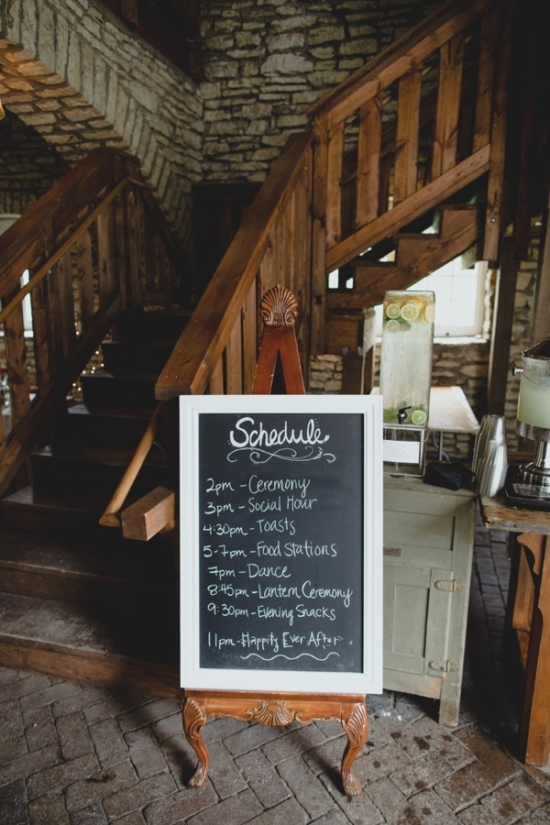 Schedule
2pm - Ceremony
3pm - Social Hour
4:30pm - Toasts
5-7pm - Food Stations
7pm - Dance
8:45pm - Lantern Ceremony
9:30pm - Evening Snacks
11pm - Happily Ever After